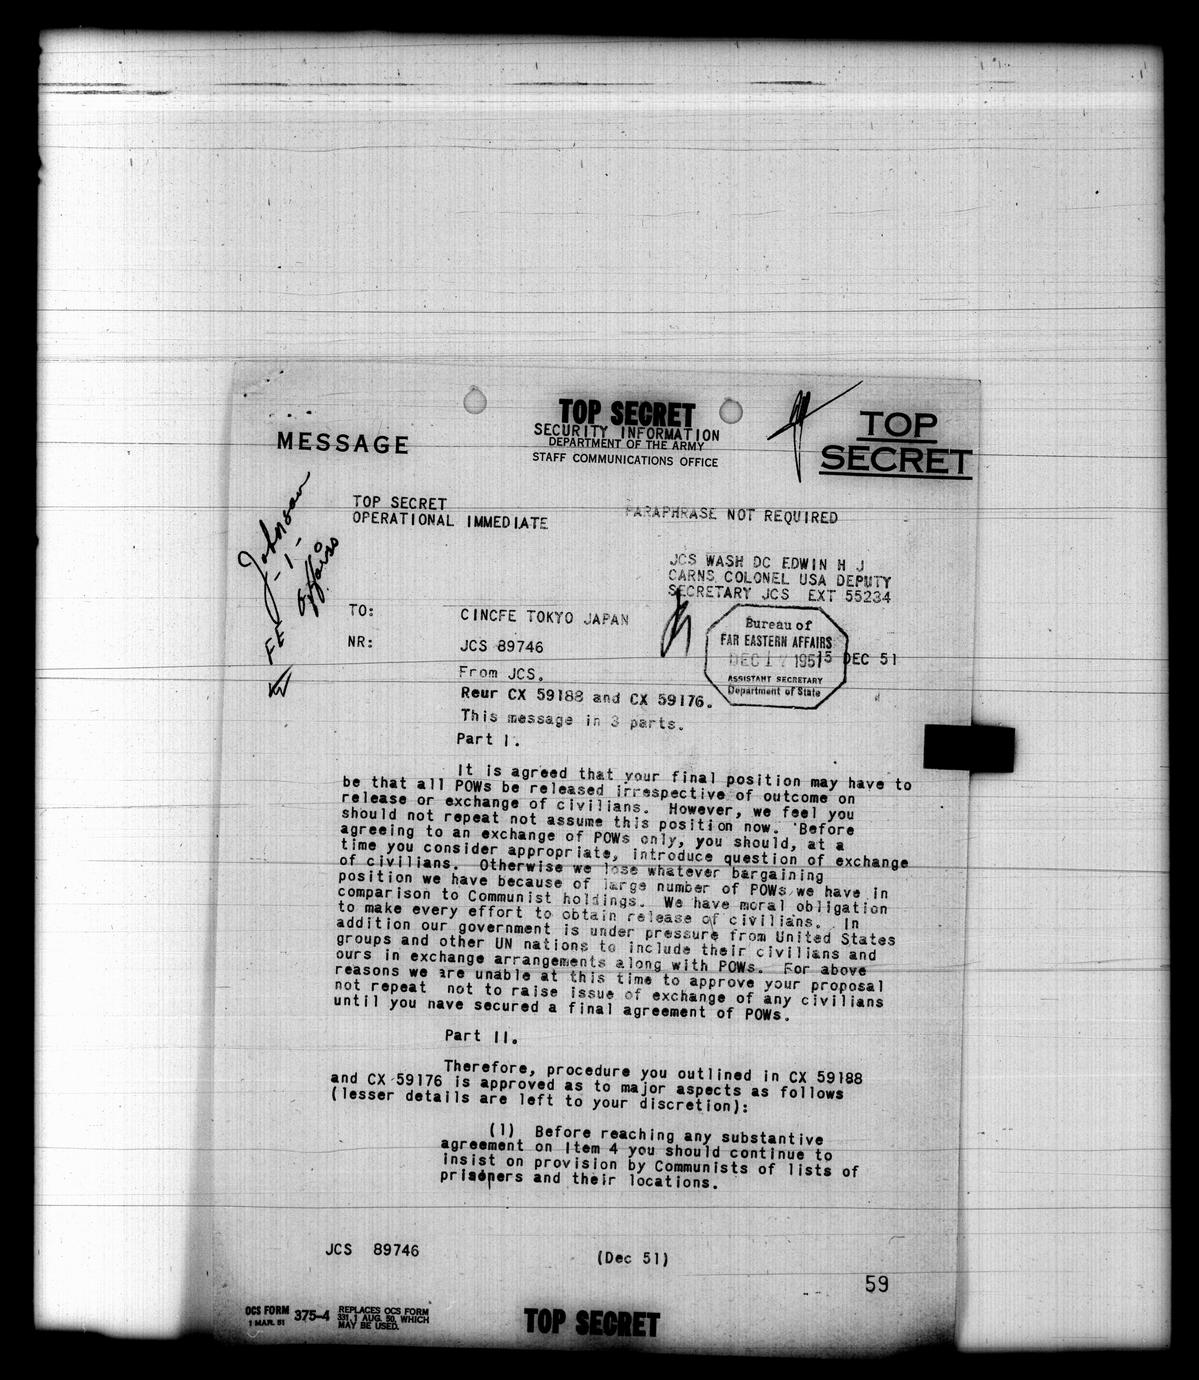 TOP SECRET
SECURITY INFORMATION
DEPARTMENT OF THE ARMY
STAFF COMMUNICATIONS OFFICE
MESSAGE
TOP
SECRET
Johnson
- 1 -
FE Affairs
TOP SECRET
OPERATIONAL IMMEDIATE
PARAPHRASE NOT REQUIRED
JCS WASH DC EDWIN H J
CARNS COLONEL USA DEPUTY
SECRETARY JCS EXT 55234
TO: CINCFE TOKYO JAPAN
NR: JCS 89746
15 DEC 51
Bureau of
FAR EASTERN AFFAIRS
DEC 17 1951
ASSISTANT SECRETARY
Department of State
From JCS.
Reur CX 59188 and CX 59176.
This message in 3 parts.
Part I.
It is agreed that your final position may have to
be that all POWs be released irrespective of outcome on
release or exchange of civilians. However, we feel you
should not repeat not assume this position now. Before
agreeing to an exchange of POWs only, you should, at a
time you consider appropriate, introduce question of exchange
of civilians. Otherwise we lose whatever bargaining
position we have because of large number of POWs we have in
comparison to Communist holdings. We have moral obligation
to make every effort to obtain release of civilians. In
addition our government is under pressure from United States
groups and other UN nations to include their civilians and
ours in exchange arrangements along with POWs. For above
reasons we are unable at this time to approve your proposal
not repeat not to raise issue of exchange of any civilians
until you nave secured a final agreement of POWs.
Part II.
Therefore, procedure you outlined in CX 59188
and CX 59176 is approved as to major aspects as follows
(lesser details are left to your discretion):
(1) Before reaching any substantive
agreement on Item 4 you should continue to
insist on provision by Communists of lists of
prisoners and their locations.
JCS 89746 (Dec 51)
59
OCS FORM 375-4 REPLACES OCS FORM
1 MAR. 51 331, 1 AUG. 50, WHICH
MAY BE USED.
TOP SECRET